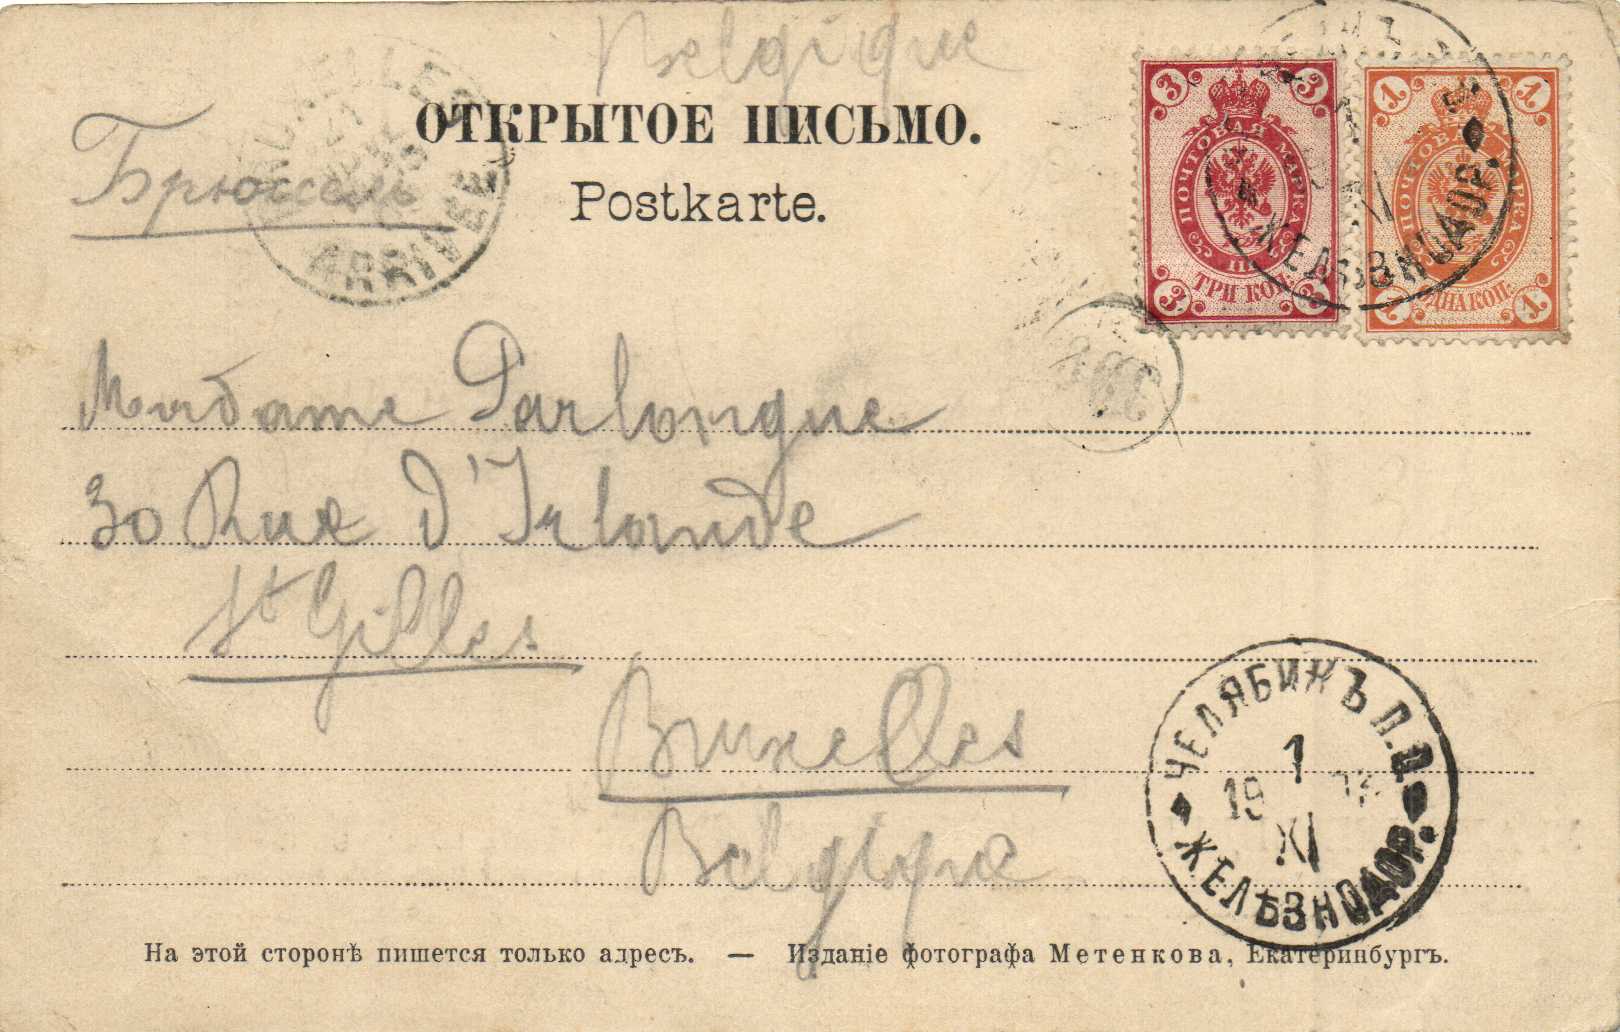 Belgique
ОТКРЫТОЕ ПИСЬМО.
Postkarte.
Брюссель
BRUXELLES
ARRIVÉE
3 3
ПОЧТОВАЯ МАРКА
ТРИ КОП.
3 3
1 1
ПОЧТОВАЯ МАРКА
ОДНА КОП.
1 1
ЖЕЛѢЗНОДОР.
Madame Parlongue
30 Rue d'Irlande
St Gilles
Bruxelles
Belgique
ЧЕЛЯБИНЪ П.О.
1
19
XI
ЖЕЛѢЗНОДОР.
На этой сторонѣ пишется только адресъ. — Изданіе фотографа Метенкова, Екатеринбургъ.